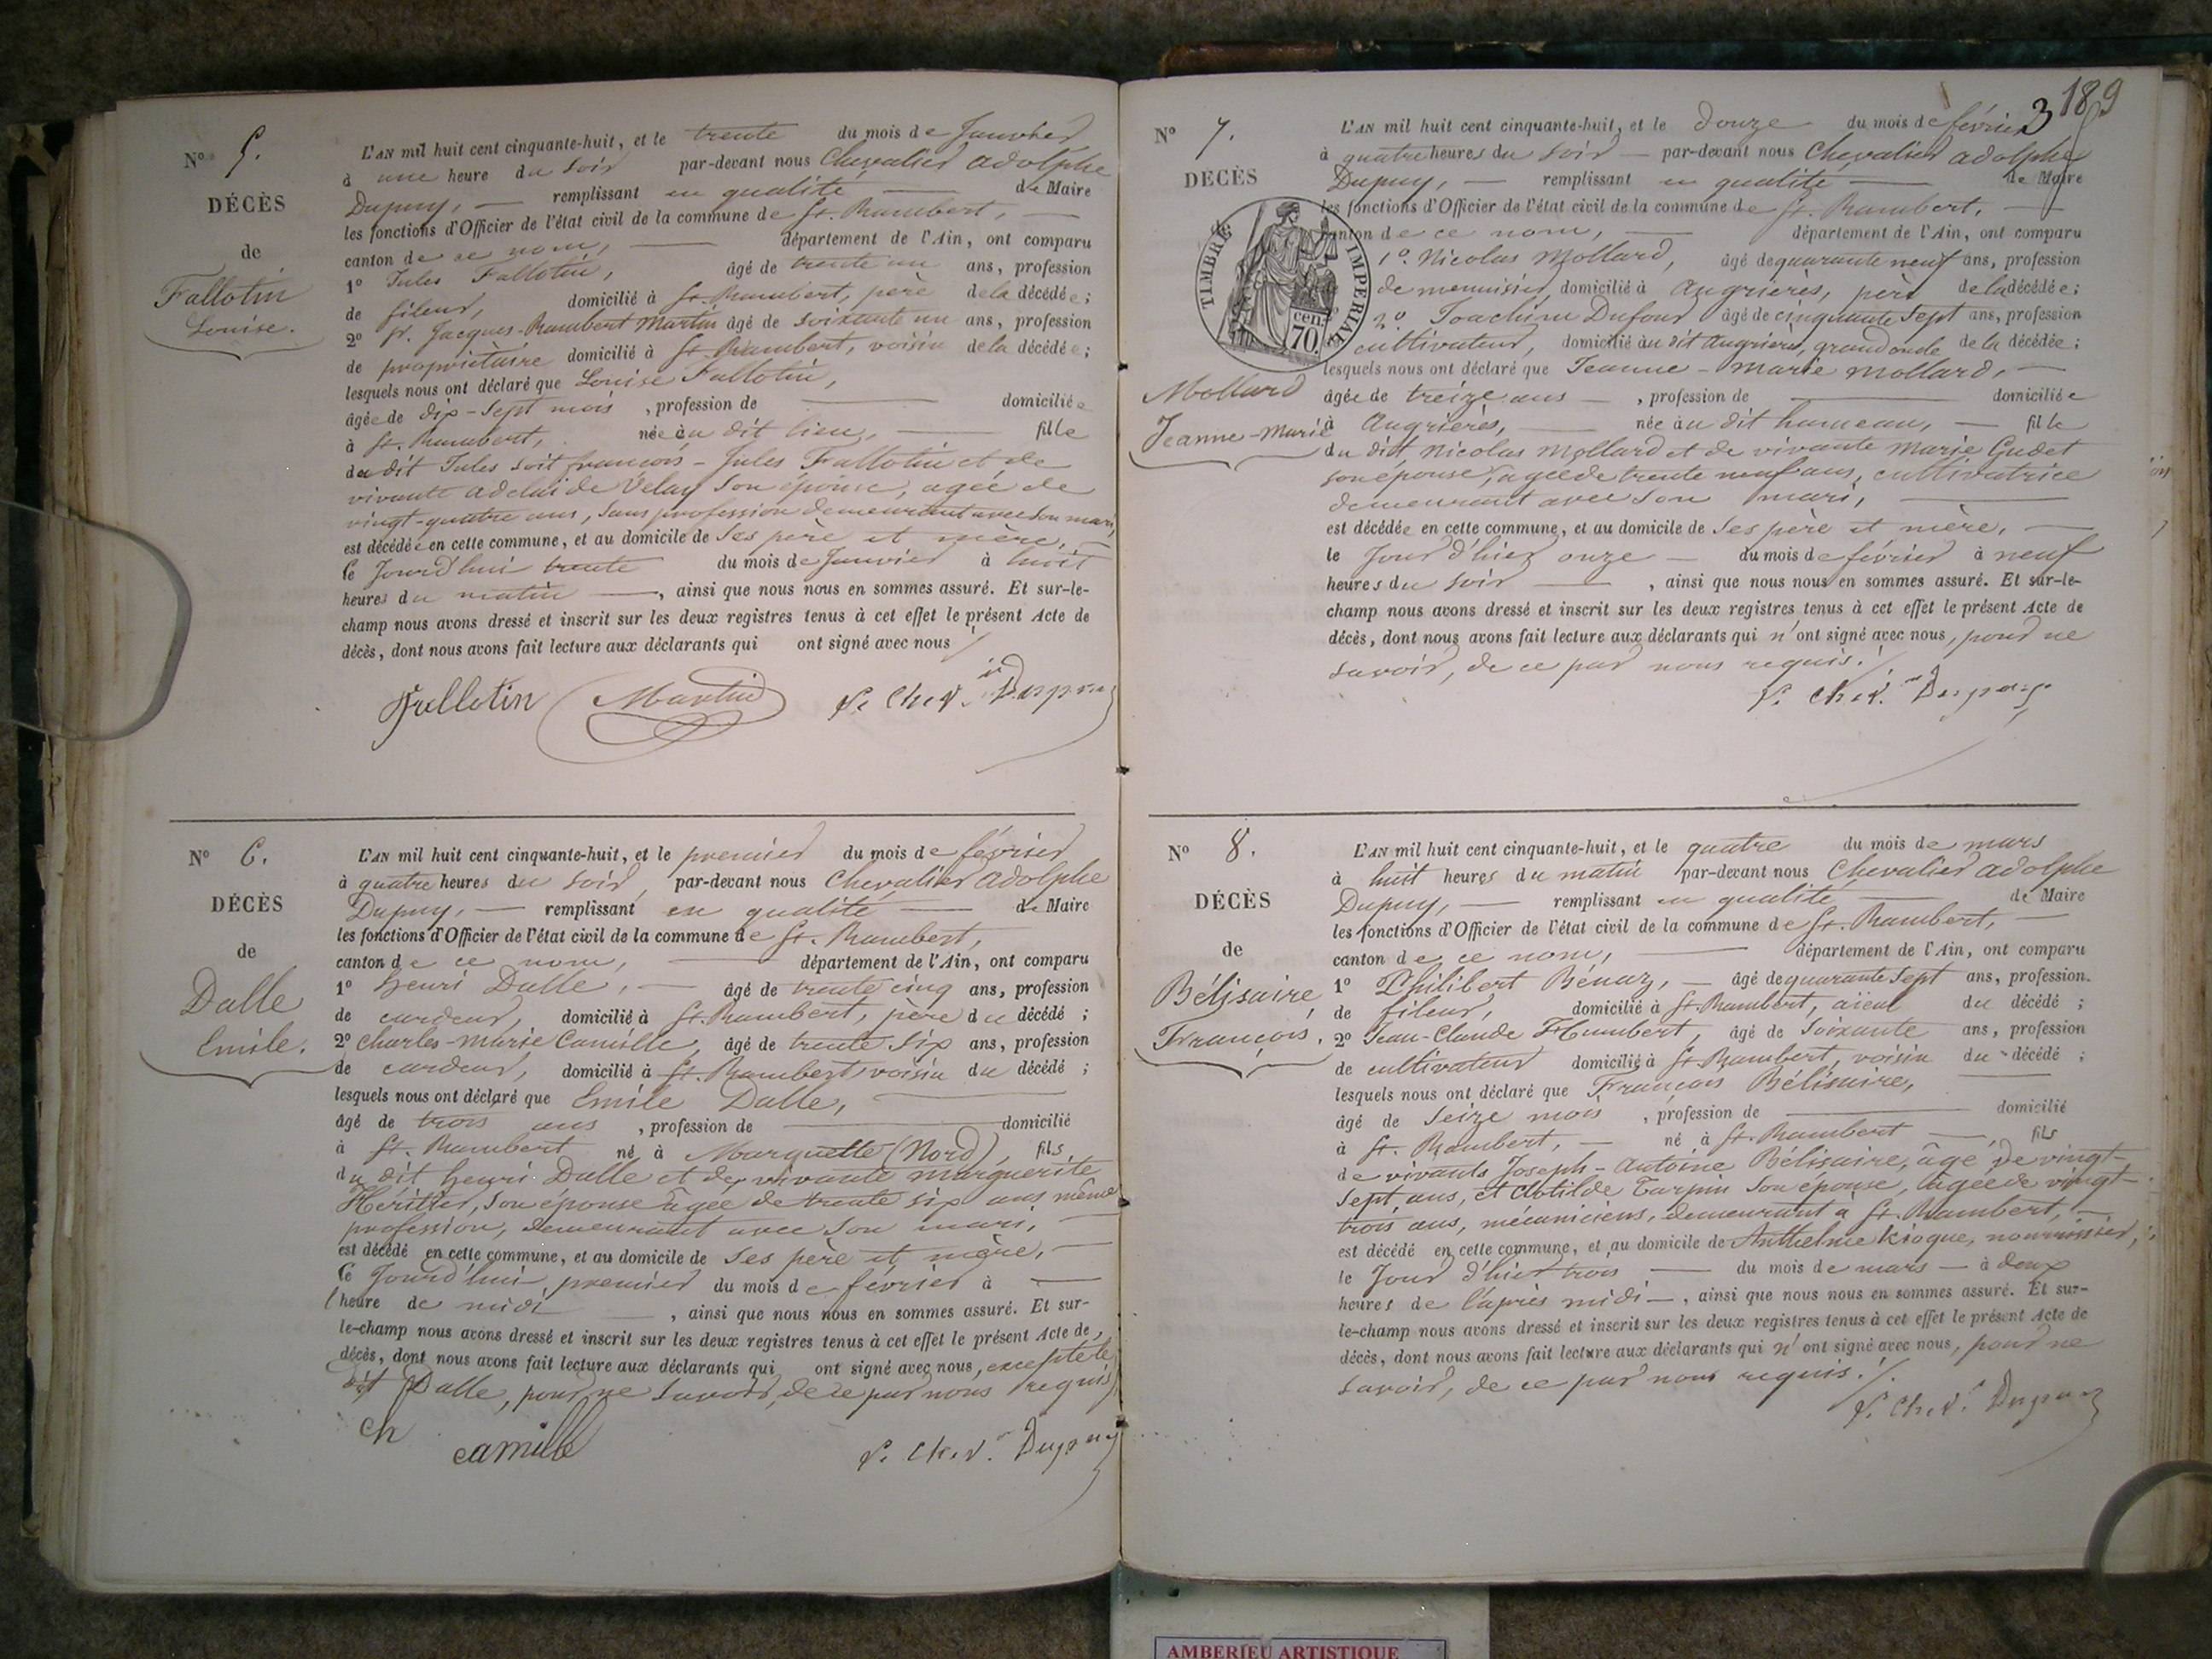 N° 5.
DÉCÈS
de
Fallotin
Louise.
L'AN mil huit cent cinquante-huit, et le trente du mois de Janvier
à une heure du soir par-devant nous Chevalier Adolphe
Dupuy, — remplissant en qualité — de Maire
les fonctions d'Officier de l'état civil de la commune de St. Rambert, —
canton de ce nom, — département de l'Ain, ont comparu
1° Jules Fallotin, âgé de trente un ans, profession
de fileur, domicilié à St. Rambert, père de la décédée;
2° Sr. Jacques-Rambert Martin âgé de soixante un ans, profession
de propriétaire domicilié à St. Rambert, voisin de la décédée;
lesquels nous ont déclaré que Louise Fallotin,
âgée de dix-sept mois, profession de — domiciliée
à St. Rambert, née au dit lieu, — fille
du dit Jules soit françois-Jules Fallotin et de
vivante adelaide Velay son épouse, agée de
vingt-quatre ans, sans profession demeurant avec son mari,
est décédée en cette commune, et au domicile de ses père et mère, —
le Jourd'hui trente du mois de Janvier à huit
heures du matin —, ainsi que nous nous en sommes assuré. Et sur-le-
champ nous avons dressé et inscrit sur les deux registres tenus à cet effet le présent Acte de
décès, dont nous avons fait lecture aux déclarants qui ont signé avec nous
Fallotin Martin Dupuy
N° 6.
DÉCÈS
de
Dalle
Emile.
L'AN mil huit cent cinquante-huit, et le premier du mois de février
à quatre heures du soir, par-devant nous Chevalier Adolphe
Dupuy, — remplissant en qualité — de Maire
les fonctions d'Officier de l'état civil de la commune de St. Rambert,
canton de ce nom, — département de l'Ain, ont comparu
1° henri Dalle, — âgé de trente cinq ans, profession
de cardeur, domicilié à St. Rambert, père du décédé;
2° Charles-Marie Camille, âgé de trente six ans, profession
de cardeur, domicilié à St. Rambert voisin du décédé;
lesquels nous ont déclaré que Emile Dalle, —
âgé de trois ans, profession de — domicilié
à St. Rambert né à Marquette (Nord), fils
du dit henri Dalle et de vivante marguerite
Héritier, son épouse âgée de trente six ans même
profession, demeurant avec son mari, —
est décédé en cette commune, et au domicile de ses père et mère, —
le Jourd'hui premier du mois de février à —
l'heure de midi —, ainsi que nous nous en sommes assuré. Et sur-
le-champ nous avons dressé et inscrit sur les deux registres tenus à cet effet le présent Acte de
décès, dont nous avons fait lecture aux déclarants qui ont signé avec nous, excepté le
dit Dalle, pour ne savoir, de ce par nous requis
Ch camille Dupuy
3 189
N° 7.
DÉCÈS
TIMBRE IMPERIAL
cen. 70.
Mollard
Jeanne-Marie
L'AN mil huit cent cinquante-huit, et le douze du mois de février
à quatre heures du soir — par-devant nous Chevalier adolphe
Dupuy, — remplissant en qualité — de Maire
les fonctions d'Officier de l'état civil de la commune de St. Rambert, —
canton de ce nom, — département de l'Ain, ont comparu
1°. Nicolas Mollard, âgé de quarante neuf ans, profession
de menuisier domicilié à Angrières, père de la décédée;
2° Joachim Dufour âgé de cinquante sept ans, profession
cultivateur, domicilié au dit Angrières, grand oncle de la décédée;
lesquels nous ont déclaré que Jeanne-Marie Mollard, —
âgée de treize ans —, profession de — domiciliée
à Angrières, — née au dit hameau, — fille
du dit Nicolas Mollard et de vivante Marie Gudet
son épouse, agée de trente neuf ans, cultivatrice
demeurant avec son mari, —
est décédée en cette commune, et au domicile de ses père et mère, —
le Jour d'hier onze — du mois de février à neuf
heures du soir —, ainsi que nous nous en sommes assuré. Et sur-le-
champ nous avons dressé et inscrit sur les deux registres tenus à cet effet le présent Acte de
décès, dont nous avons fait lecture aux déclarants qui n'ont signé avec nous, pour ne
savoir, de ce par nous requis./.
Dupuy
N° 8.
DÉCÈS
de
Bélisaire
François.
L'AN mil huit cent cinquante-huit, et le quatre du mois de mars
à huit heures du matin par-devant nous Chevalier adolphe
Dupuy, — remplissant en qualité — de Maire
les fonctions d'Officier de l'état civil de la commune de St. Rambert, —
canton de ce nom, — département de l'Ain, ont comparu
1° Philibert Bénaz, — âgé de quarante sept ans, profession.
de fileur, domicilié à St. Rambert, aïeul du décédé;
2° Jean-Claude Humbert, âgé de soixante ans, profession
de cultivateur domicilié à St. Rambert, voisin du décédé;
lesquels nous ont déclaré que François Bélisaire, —
âgé de seize mois, profession de — domicilié
à St. Rambert, — né à St. Rambert —, fils
de vivants Joseph-Antoine Bélisaire, âgé de vingt-
sept ans, et Clotilde Turpin son épouse, agée de vingt-
trois ans, mécaniciens, demeurant à St. Rambert, —
est décédé en cette commune, et au domicile de Anthelme Kioque, nourrissier,
le Jour d'hier trois — du mois de mars — à deux
heures de l'après midi —, ainsi que nous nous en sommes assuré. Et sur-
le-champ nous avons dressé et inscrit sur les deux registres tenus à cet effet le présent Acte de
décès, dont nous avons fait lecture aux déclarants qui n'ont signé avec nous, pour ne
savoir, de ce par nous requis./.
Dupuy
AMBERIEU ARTISTIQUE